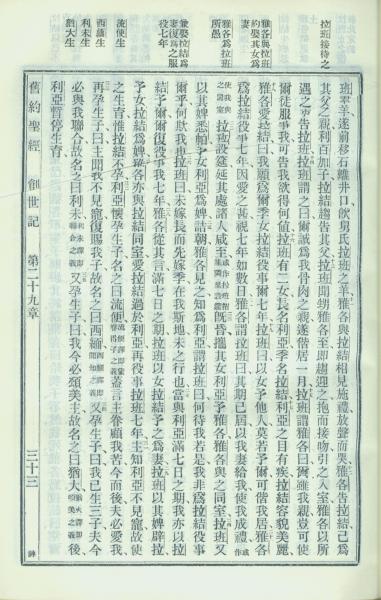 拉班接待之
雅各與拉結
約娶其女爲
妻
雅各爲拉班
所愚
兼娶拉結爲
妻復爲之服
役七年
流便生
西緬生
利未生
猶大生
班羣羊遂前移石離井口飲舅氏拉班之羊雅各與拉結相見施禮放聲而哭雅各告拉結己爲
其父之親利百加子拉結趨告其父拉班聞甥雅各至即趨迎之抱而接吻引之入室雅各以所
遇之事告拉班拉班謂之曰爾誠爲我骨肉之親遂偕居一月拉班謂雅各曰爾雖我親豈可使
爾徒服事我可告我欲得何値拉班有二女長名利亞季名拉結利亞之目有疾拉結容貌美麗
雅各愛拉結曰我願爲爾季女拉結役事爾七年拉班曰以女予他人莫若予爾可偕我居雅各
爲拉結役事七年因愛之甚視七年如數日雅各謂拉班曰其期已屆以我妻給我使我成禮或作
使我與之同室拉班設筵延其處諸人咸至或作拉班招集隣里設盛筵既昏攜其女利亞予雅各雅各與之同室拉班又
以其婢悉帕予女利亞爲婢詰朝雅各見之知爲利亞謂拉班曰何待我若是我非爲拉結役事
爾乎何欺我也拉班曰未嫁長而先嫁季在我斯地未之行也當與利亞滿七日之期我亦以拉
結予爾爾復役事我七年雅各從其言滿七日之期拉班以女拉結予之爲妻拉班以其婢辟拉
予女拉結爲婢雅各亦與拉結同室愛拉結過於利亞再役事拉班七年主知利亞不見寵故使
之生育惟拉結不孕利亞懷孕生子名之曰流便流便譯即得子之義蓋言主眷顧我苦今而後夫必愛我
再孕生子曰主聞我不見寵復賜我子故名之曰西緬西緬譯即聞知之義又孕生子曰我已生三子夫今
必與我聯合故名之曰利未利未譯即聯合之義又孕生子曰我今必頌美主故名之曰猶大猶大譯即頌美之義後
利亞暫停生育
舊約聖經 創世記 第二十九章 三十三